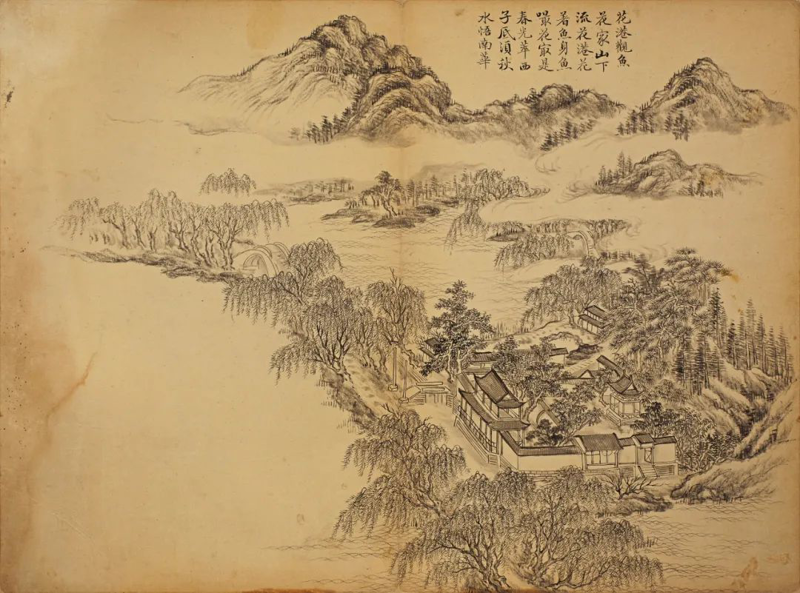 花港觀魚
花家山下
流花港花
着魚身魚
嘬花最是
春光萃西
子底須秋
水悟南華